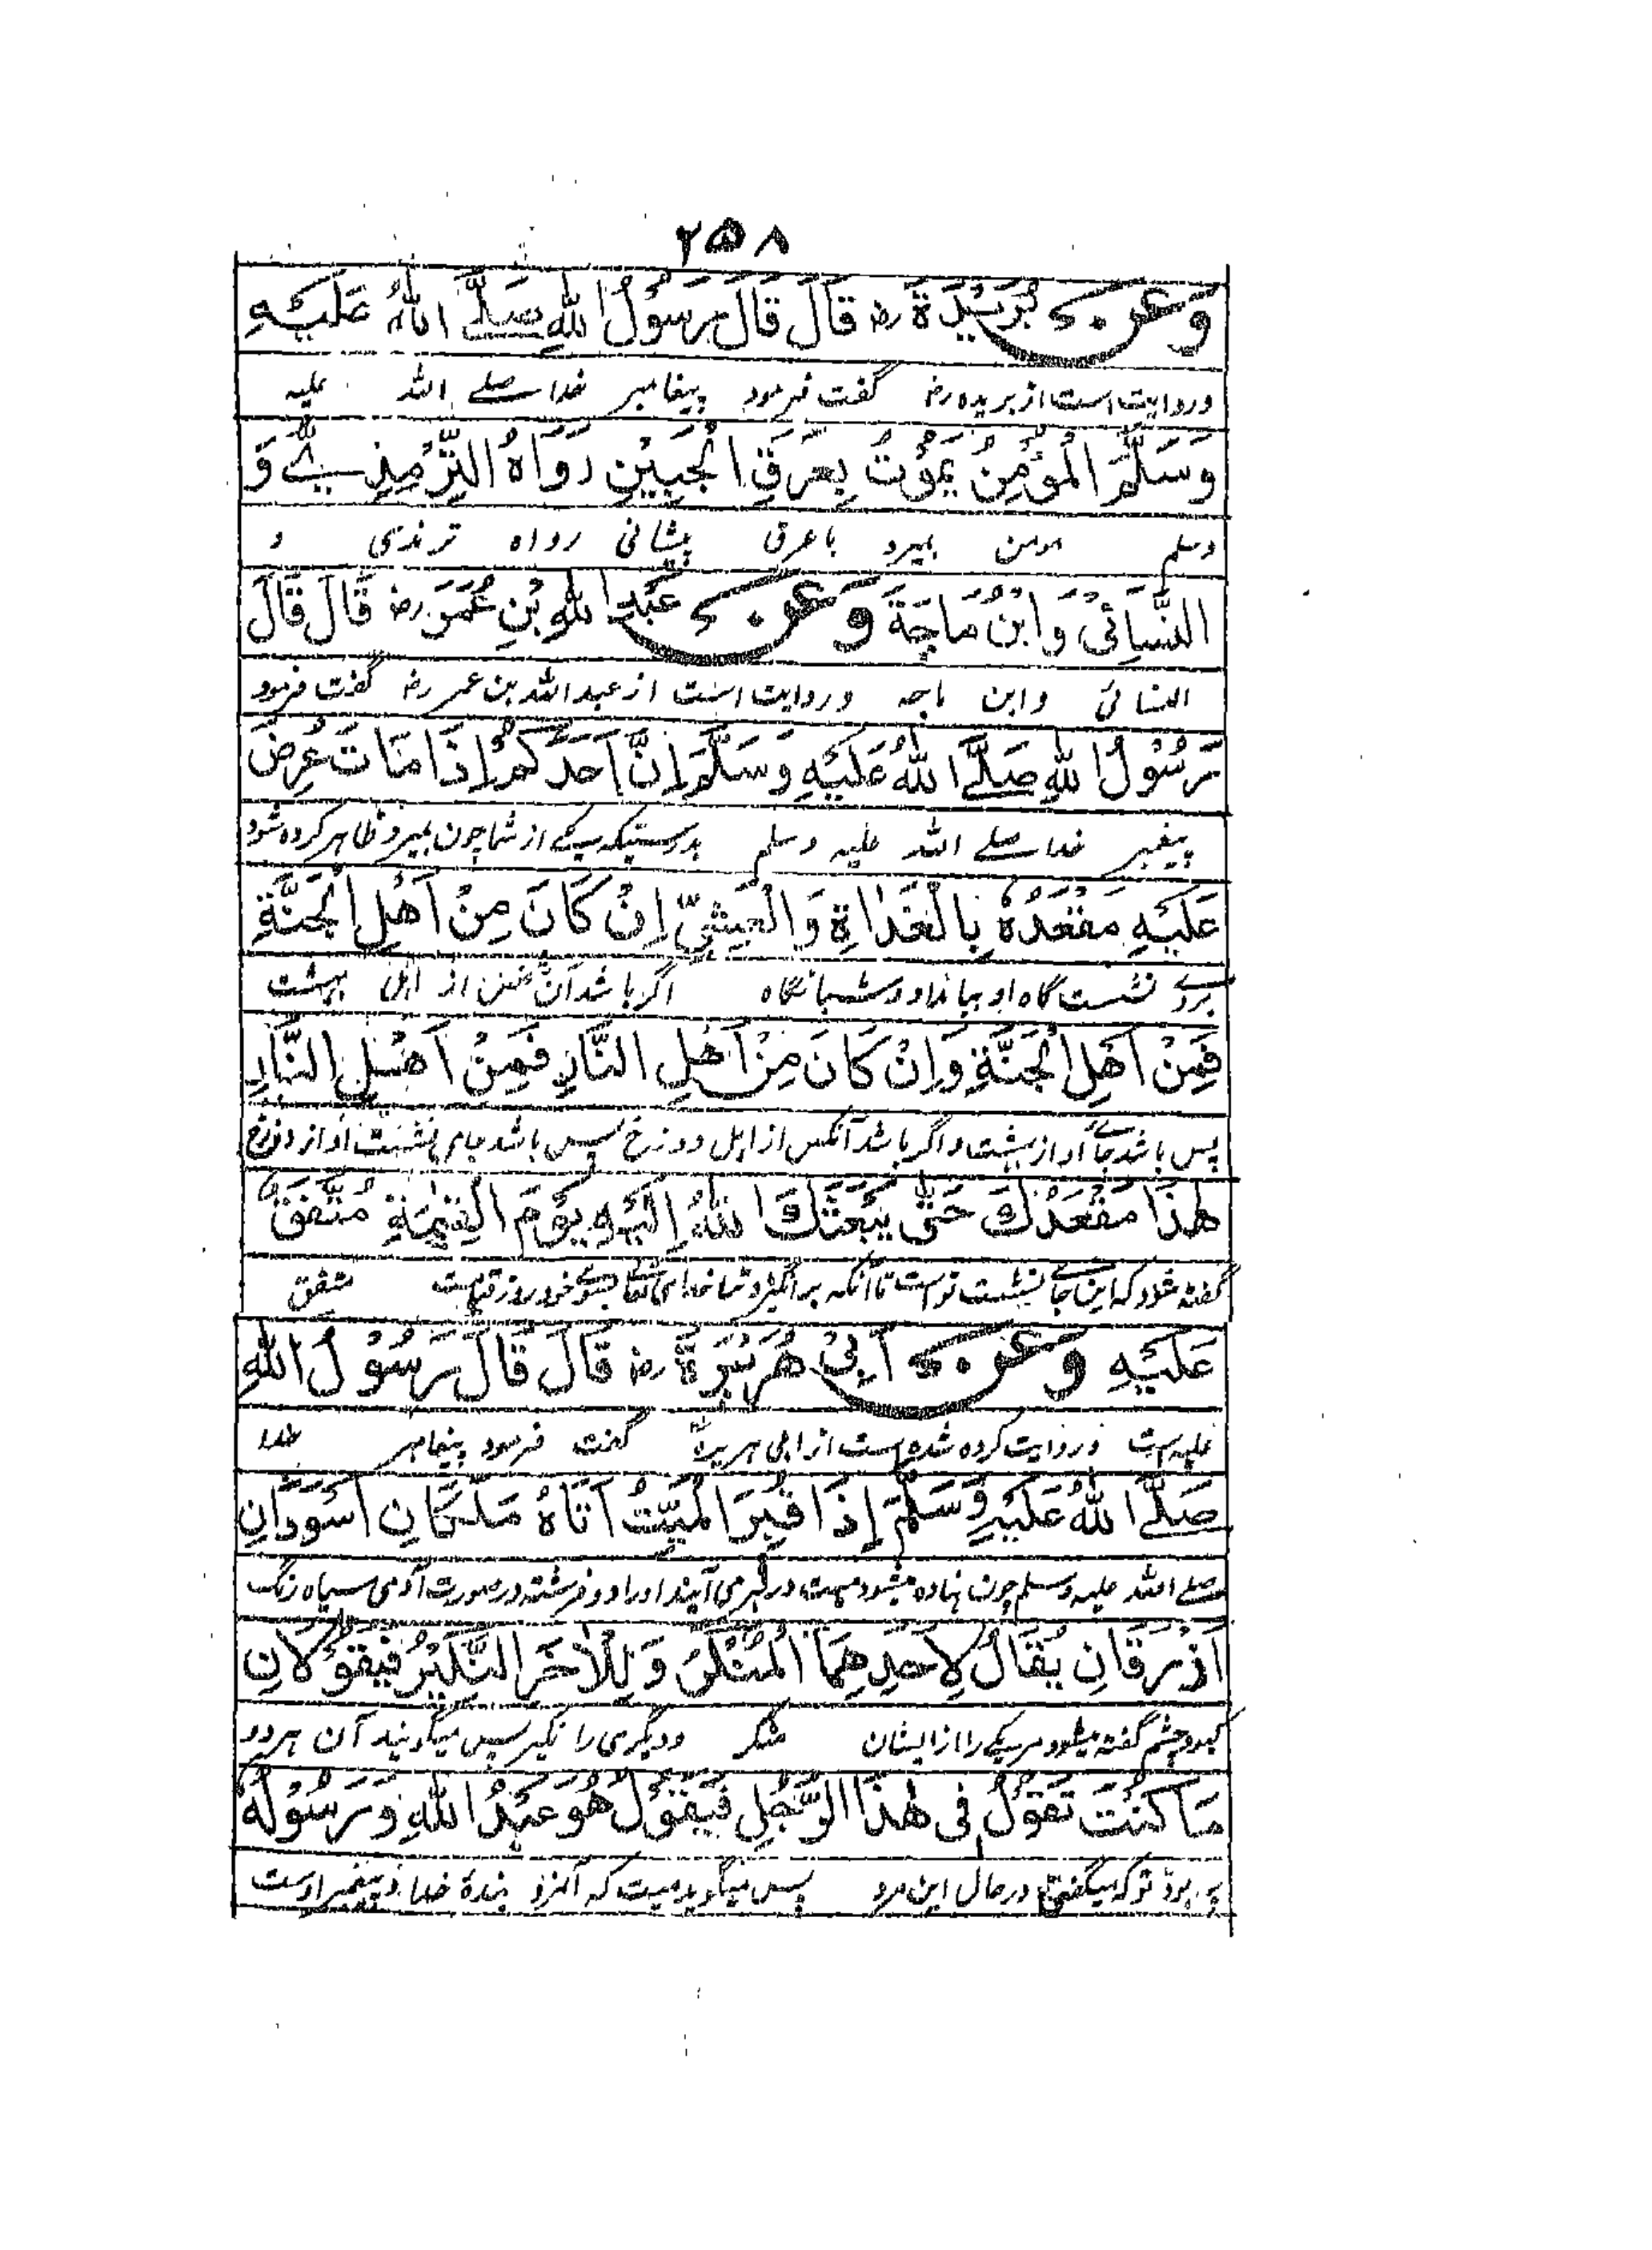 ۲۵۸
وَعَنْ بُرَيْدَةَ رض قَالَ قَالَ رَسُوْلُ اللّٰهِ صَلَّے اللّٰهُ عَلَيْهِ
و روایت است از بریده رض گفت فرمود پیغامبر خدا صلے اللہ علیہ
وَسَلَّمَ الْمُؤْمِنُ يَمُوْتُ بِعَرَقِ الْجَبِيْنِ رَوَاهُ التِّرْمِذِيُّ وَ
وسلم مومن بمیرد با عرق پیشانی رواه ترمذی و
النَّسَائِيُّ وَابْنُ مَاجَةَ وَعَنْ عَبْدِ اللّٰهِ بْنِ عُمَرَ رض قَالَ قَالَ
النسائی و ابن ماجہ و روایت است از عبد اللہ بن عمر رض گفت فرمود
رَسُوْلُ اللّٰهِ صَلَّے اللّٰهُ عَلَيْهِ وَسَلَّمَ اِنَّ اَحَدَكُمْ اِذَا مَاتَ عُرِضَ
پیغمبر خدا صلے اللہ علیہ وسلم بدرستیکہ یکے از شما چون بمیرد ظاہر کرده شود
عَلَيْهِ مَقْعَدُهٗ بِالْغَدَاةِ وَالْعَشِيِّ اِنْ كَانَ مِنْ اَهْلِ الْجَنَّةِ
بروے نشست گاه او ببامداد و شبانگاه اگر باشد آن از اہل بہشت
فَمِنْ اَهْلِ الْجَنَّةِ وَاِنْ كَانَ مِنْ اَهْلِ النَّارِ فَمِنْ اَهْلِ النَّارِ
پس باشد جاے او از بہشت و اگر باشد آنکس از اہل دوزخ پس باشد جای نشست او از دوزخ
هٰذَا مَقْعَدُكَ حَتّٰى يَبْعَثَكَ اللّٰهُ اِلَيْهِ يَوْمَ الْقِيٰمَةِ مُتَّفَقٌ
گفتہ شود کہ این جاے نشست تو است تا آنکہ بر انگیزد شما خدای تعالے بسوے خود روز قیامت متفق
عَلَيْهِ وَعَنْ اَبِيْ هُرَيْرَةَ رض قَالَ قَالَ رَسُوْلُ اللّٰهِ
علیہ است و روایت کرده شده است از ابی ہریرہ گفت فرمود پیغامبر خدا
صَلَّے اللّٰهُ عَلَيْهِ وَسَلَّمَ اِذَا قُبِرَ الْمَيِّتُ اَتَاهُ مَلَكَانِ اَسْوَدَانِ
صلے اللہ علیہ وسلم چون نہاده میشود میت در قبر می آیند او را دو فرشتہ در صورت آدمی سیاه رنگ
اَزْرَقَانِ يُقَالُ لِاَحَدِهِمَا الْمُنْكَرُ وَلِلْاٰخَرِ النَّكِيْرُ فَيَقُوْلَانِ
کبود چشم گفتہ میشود مر یکے را از ایشان منکر و دیگری را نکیر پس میگویند آن ہر دو
مَا كُنْتَ تَقُوْلُ فِي هٰذَا الرَّجُلِ فَيَقُوْلُ هُوَ عَبْدُ اللّٰهِ وَرَسُوْلُهٗ
بود تو کہ میگفتی در حال این مرد پس میگوید میت کہ آنمرد بندۂ خدا و پیغمبر اوست